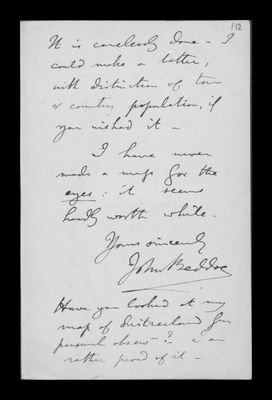 112
It is carelessly done - I
could make a better,
with distinction of town
& country population, if
you wished it -
I have never
made a map for the
eyes: it seems
hardly worth while.
Yours sincerely
John Beddoe
Have you looked at my
map of Switzerland for
 ? I am
rather proud of it -